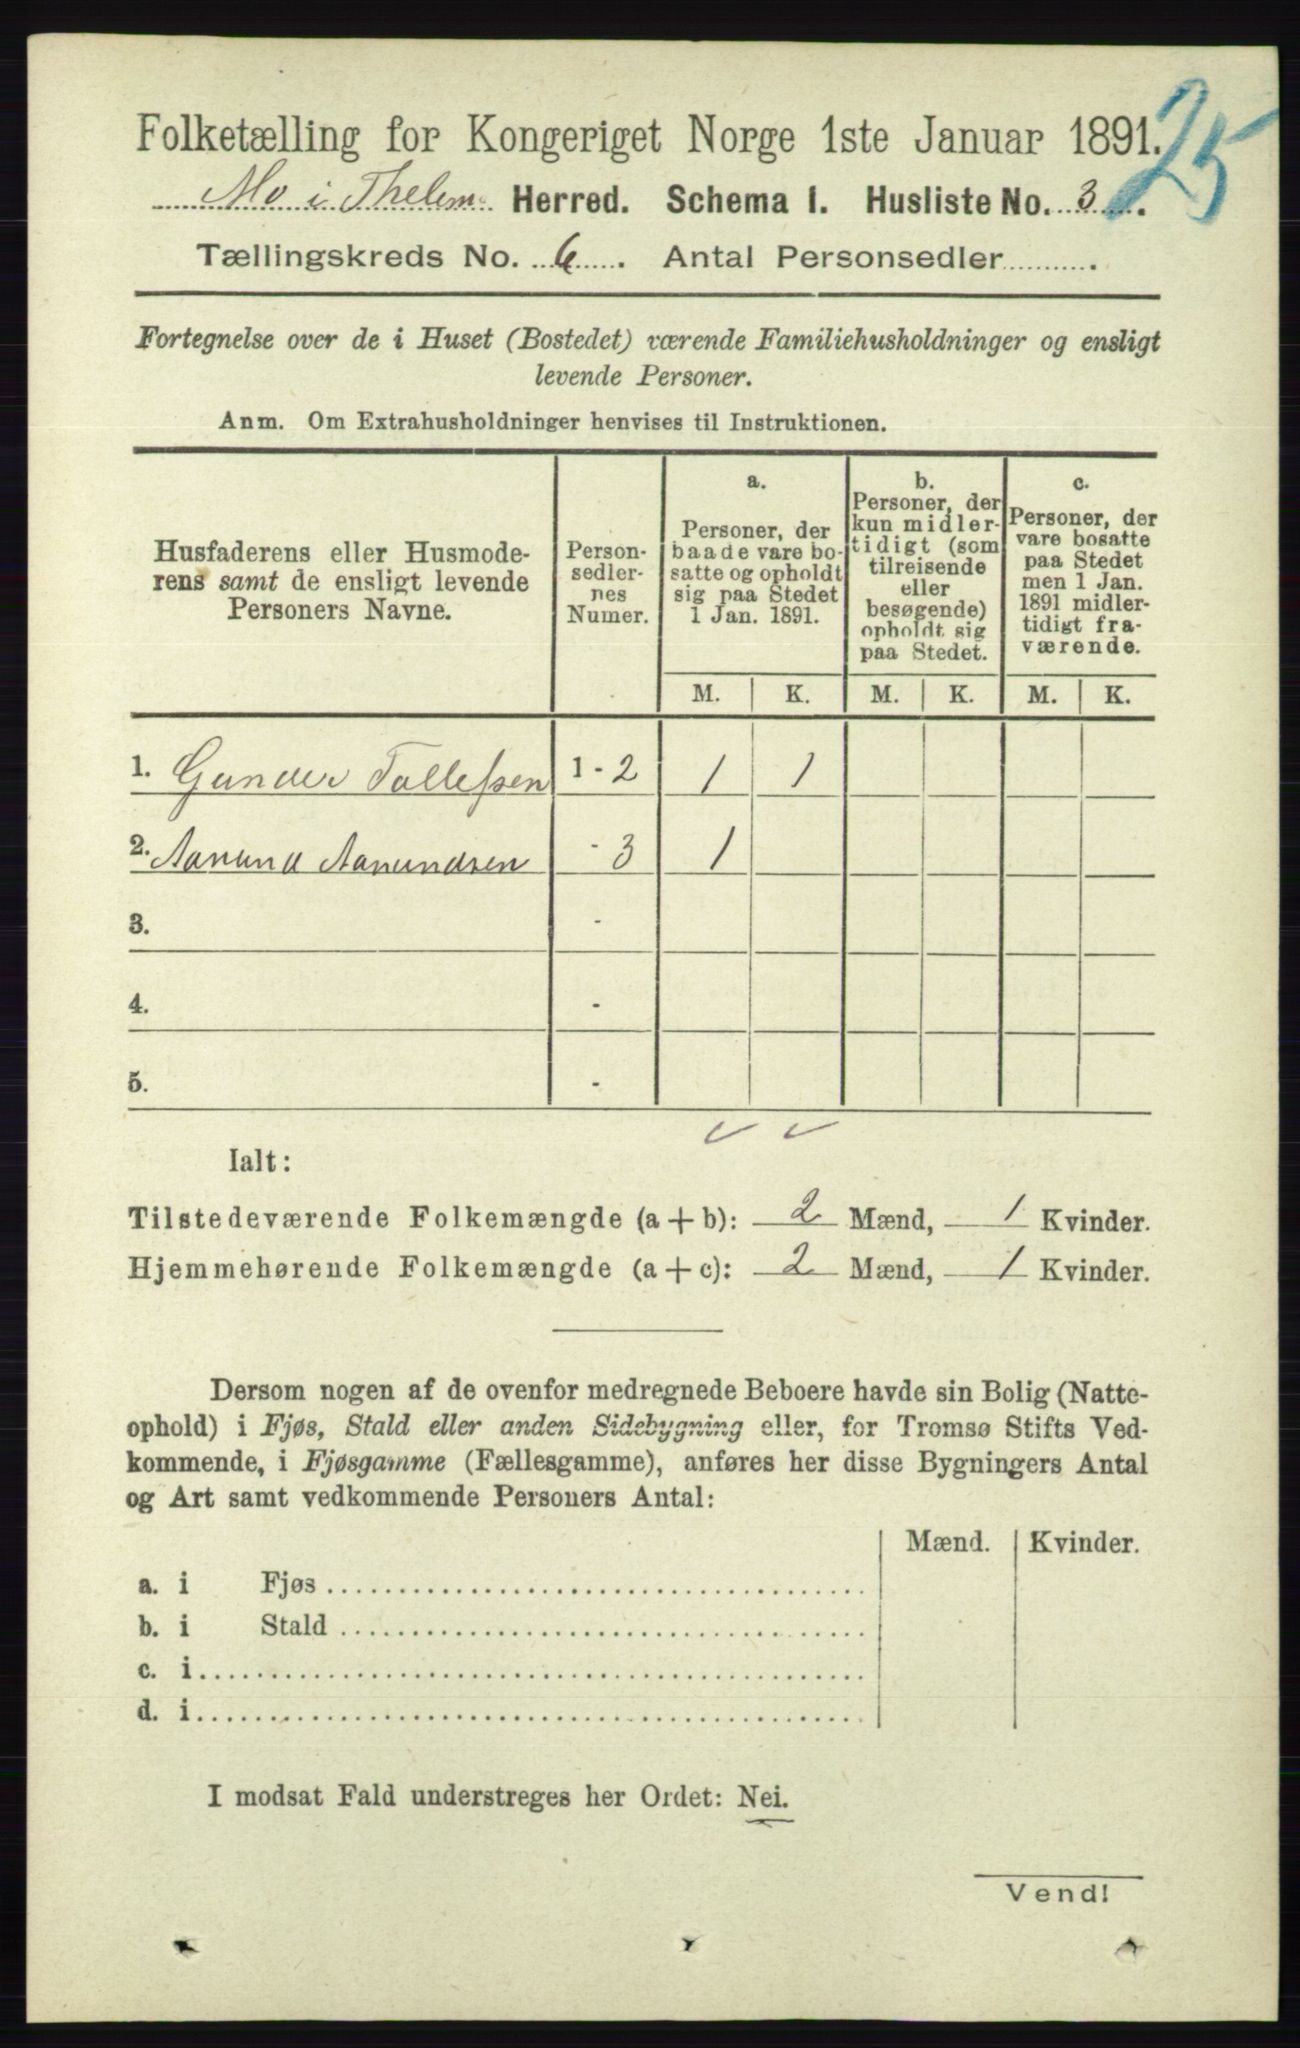 25
Folketælling for Kongeriget Norge 1ste Januar 1891.
Mo i Thelem. Herred. Schema I. Husliste No. 3.
Tællingskreds No. 6. Antal Personsedler
Fortegnelse over de i Huset (Bostedet) værende Familiehusholdninger og ensligt
levende Personer.
Anm. Om Extrahusholdninger henvises til Instruktionen.
Husfaderens eller Husmode-
rens samt de ensligt levende
Personers Navne.
Person-
sedler-
nes
Numer.
a.
Personer, der
baade vare bo-
satte og opholdt
sig paa Stedet
1 Jan. 1891.
b.
Personer, der
kun midler-
tidigt (som
tilreisende
eller
besøgende)
opholdt sig
paa Stedet.
c.
Personer, der
vare bosatte
paa Stedet
men 1 Jan.
1891 midler-
tidigt fra-
værende.
M. K. M. K. M. K.
1. Gunder Tallefsen 1 - 2 1 1
2. Aanund Aanundsen - 3 1
3. -
4. -
5. -
Ialt:
Tilstedeværende Folkemængde (a + b): 2 Mænd, 1 Kvinder.
Hjemmehørende Folkemængde (a + c): 2 Mænd, 1 Kvinder.
Dersom nogen af de ovenfor medregnede Beboere havde sin Bolig (Natte-
ophold) i Fjøs, Stald eller anden Sidebygning eller, for Tromsø Stifts Ved-
kommende, i Fjøsgamme (Fællesgamme), anføres her disse Bygningers Antal
og Art samt vedkommende Personers Antal:
Mænd. Kvinder.
a. i Fjøs
b. i Stald
c. i
d. i
I modsat Fald understreges her Ordet: Nei.
Vend!